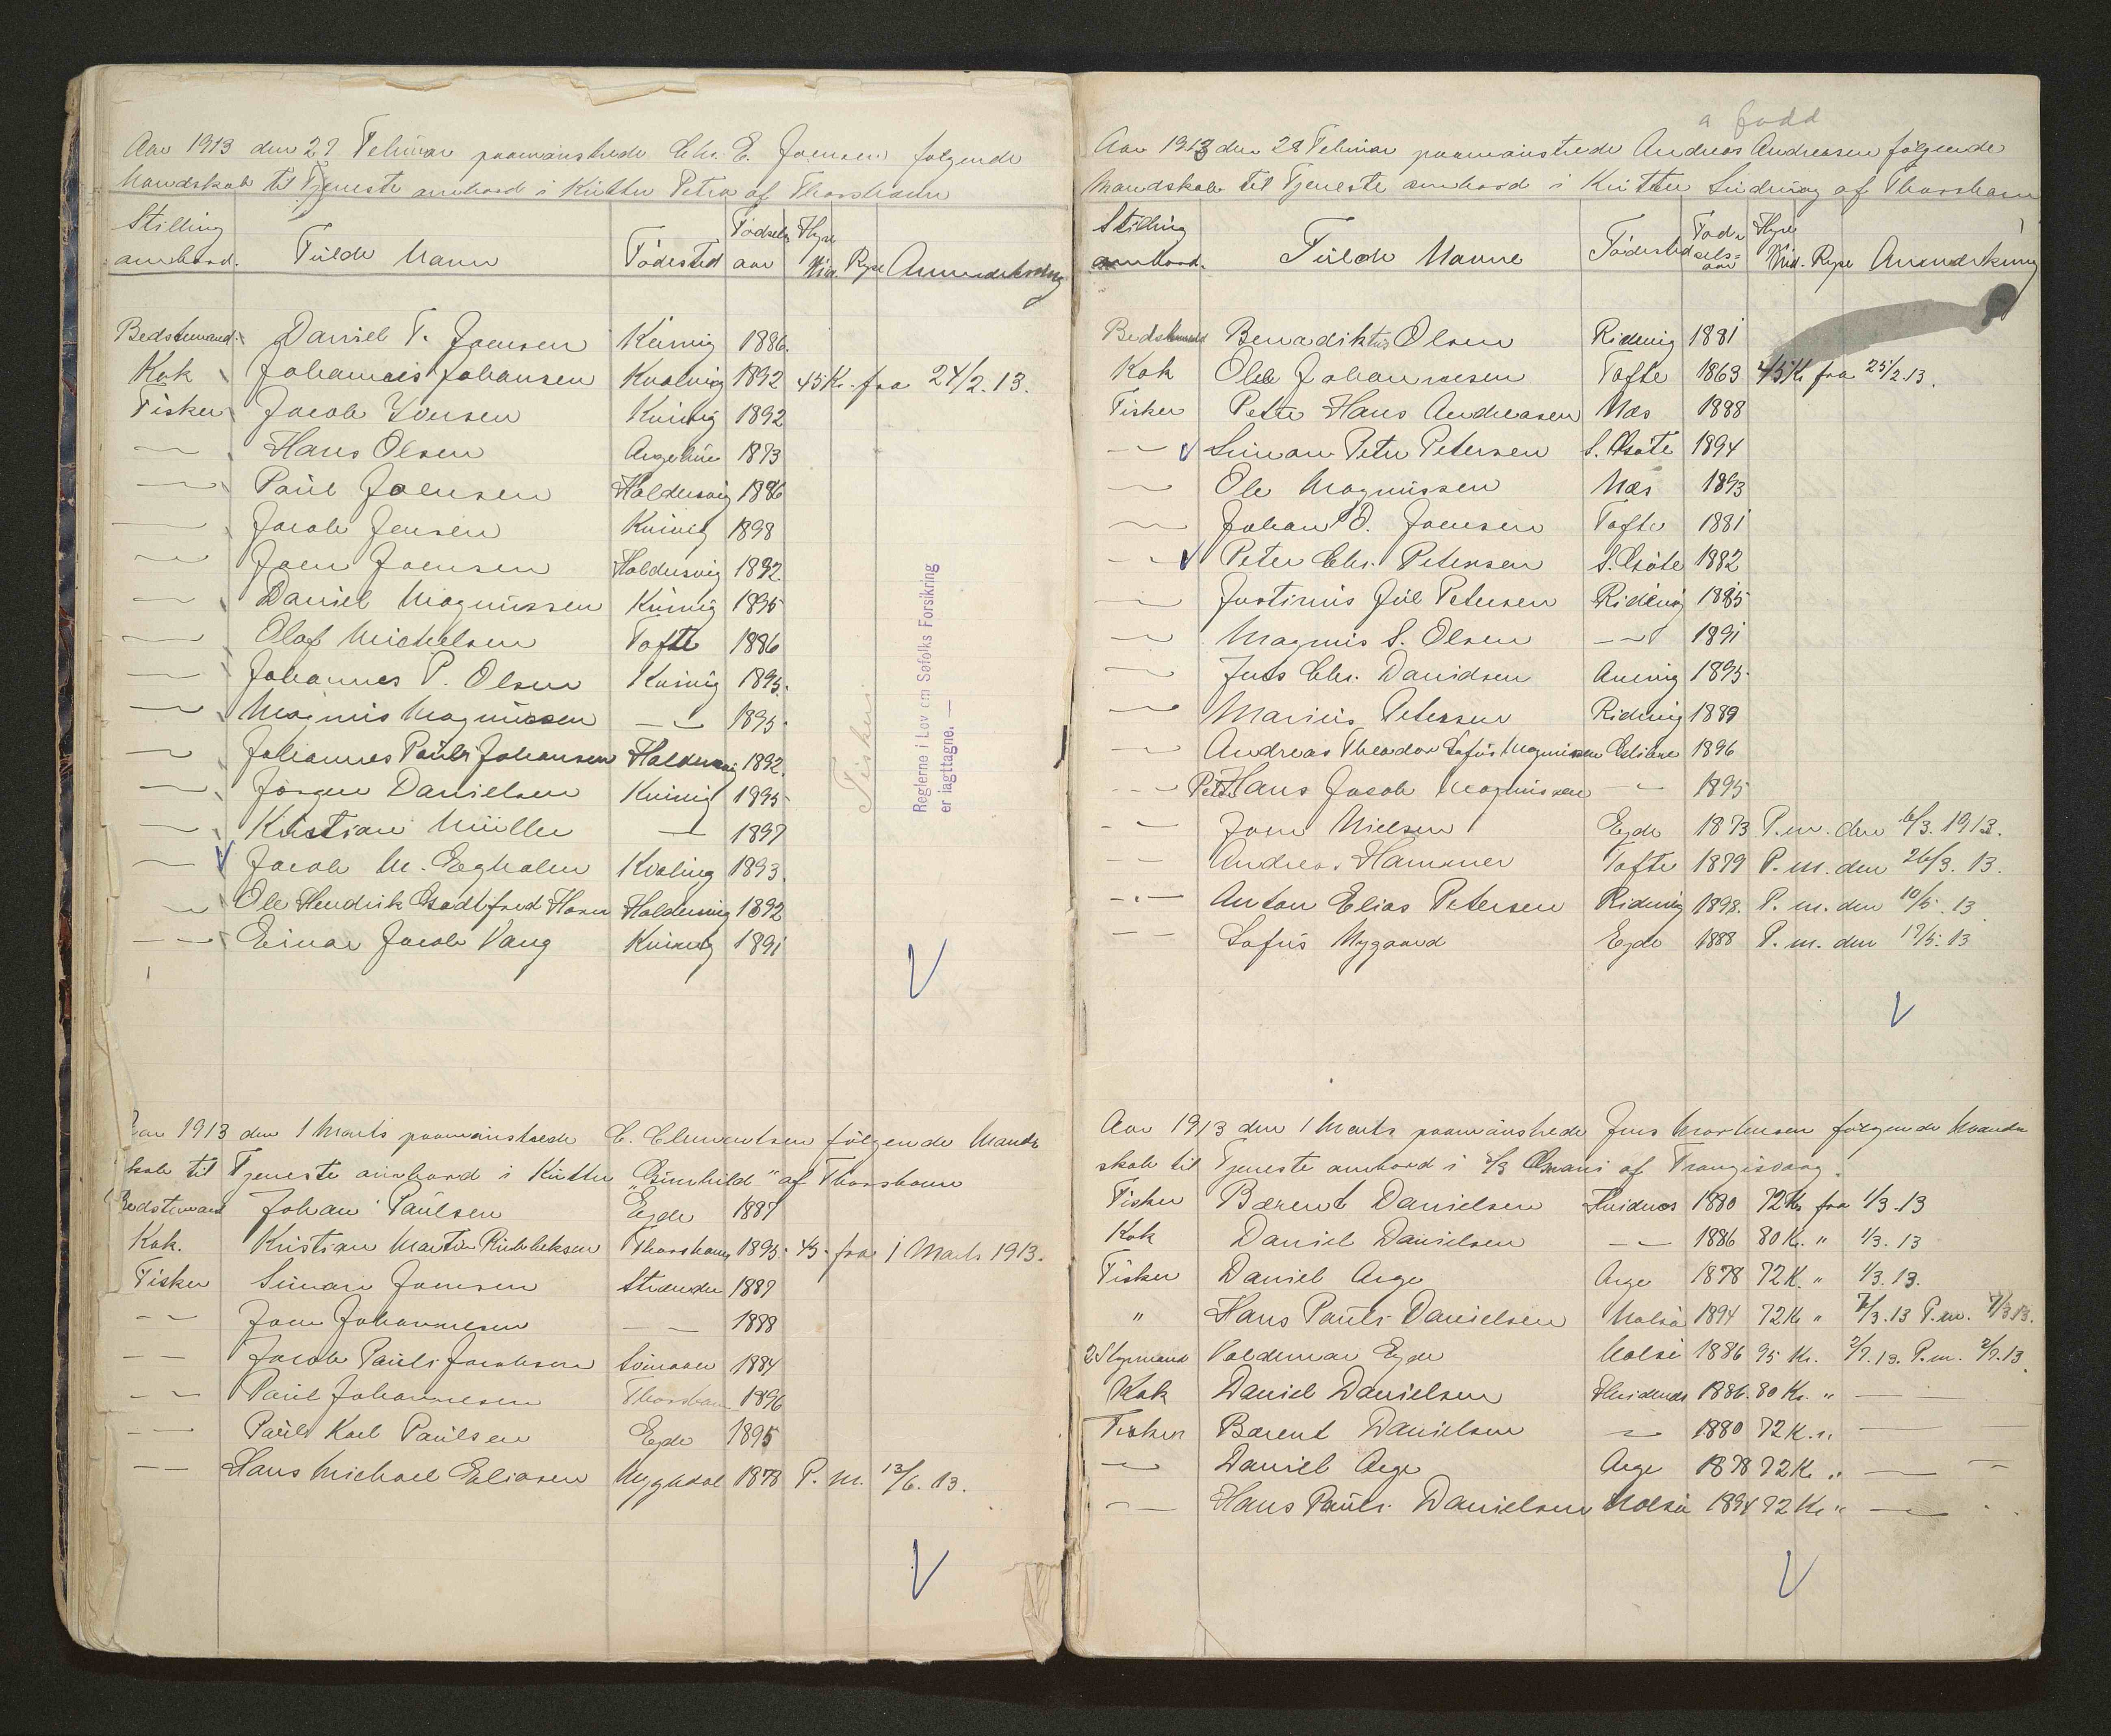 Aar 1913 den 22 Februar paamønstrede Chr. E. Joensen følgende
Mandskab til Tjeneste ombord i Kutter Petra af Thorshavn
Stilling ombord. Fulde Navn Fødested Fødsels aar Hyre Md. Rejse Anmærkning
Bedstemand Daniel T. Joensen Kvivig 1886.
Kok Johannes Johansen Kvalvig 1892 45 Kr. fra 24/2. 13.
Fisker Jacob Iversen Kvivig 1892
— Hans Olsen 1873
— Paul Joensen Haldersvig 1886
— Jacob Jensen Kvivig 1898
— Joen Joensen Haldersvig 1892
— Daniel Magnussen Kvivig 1895
— Olaf Michelsen Tofte 1886
— Johannes P. Olsen Kvivig 1895.
— Magnus Magnussen — 1895.
— Johannes Pauli Johansen Haldersvig 1892.
— Jörgen Danielsen Kvivig 1895
— Kristian Müller — 1897
— Jacob M. Egholm Kvalvig 1893.
— Ole Hendrik Godtfred Haldersvig 1892
— Einar Jacob Vang Kvivig 1891
Fisker
Reglerne i Lov om Søfolks Forsikring
er iagttagne. —
Aar 1913 den 1 Marts paamønstrede C. Clementsen følgende Mand-
skab til Tjeneste ombord i Kutter "Gunhild" af Thorshavn
Bedstemand Johan Paulsen Ejde 1887
Kok. Kristian Martin Thorshavn 1895. 45. fra 1 Marts 1913.
Fisker Simon Joensen Strænder 1887
— Joen Johannesen — 1888
— Jacob Pauli Jacobsen 1884
— Paul Johannesen Thorshavn 1896
— Pauli Karl Paulsen Ejde 1895
— Hans Michael Eliasen 1878 P. m. 13/6. 13.
a fodd
Aar 1913 den 28 Februar paamønstrede Andreas Andreasen følgende
Mandskab til Tjeneste ombord i Kutter Suderøy af Thorshavn
Stilling ombord. Fulde Navne Fødested Fødselsaar Hyre Md. Rejse Anmærkning
Bedstemand Benadiktus Olsen Ridevig 1881
Kok Ole Johannesen Tofte 1863 45 Kr fra 25/2 13.
Fisker Peter Hans Andreasen Næs 1888
— Simon Peter Petersen S. Gøte 1894
— Ole Magnussen Næs 1893
— Johan D. Joensen Tofte 1881
— Peter Chr. Petersen S. Gøte 1882
— Justinus Jul Petersen Ridevig 1885
— Magnus S. Olsen — 1891
— Jens Chr. Davidsen 1895
— Marius Petersen Ridevig 1889
— Andreas Theodor Sofus Magnussen 1896
— Peter Hans Jacob Magnussen — 1895
— Joen Nielsen Ejde 1873 P. m. den 6/3. 1913.
— Andreas Hammer Tofte 1879 P. m. den 26/3. 13.
— Anton Elias Petersen Ridevig 1898. P. m. den 10/5. 13
— Sofus Nygaard Ejde 1888 P. m. den 17/5. 13
Aar 1913 den 1 Marts paamønstrede Jens Mortensen følgende Mand-
skab til Tjeneste ombord i af Trangisvaag.
Fisker Bærent Danielsen Hvidenæs 1880 72 Kr fra 1/3. 13
Kok Daniel Danielsen — 1886 80 K. " 1/3. 13
Fisker Daniel Arge Arge 1878 72 K. " 1/3. 13.
" Hans Pauli Danielsen Nolsø 1894 72 K " 7/3. 13 P. m. 7/3 13.
2 Styrmand Valdemar Ejde Nolsø 1886 95 Kr. 2/7. 13. P. m. 2/7. 13.
Kok Daniel Danielsen Hvidenæs 1886. 80 Kr. " —
Fisker Bærent Danielsen — 1880 72 K. " —
— Daniel Arge Arge 1878 72 K " —
— Hans Pauli Danielsen Nolsø 1894 72 K " —